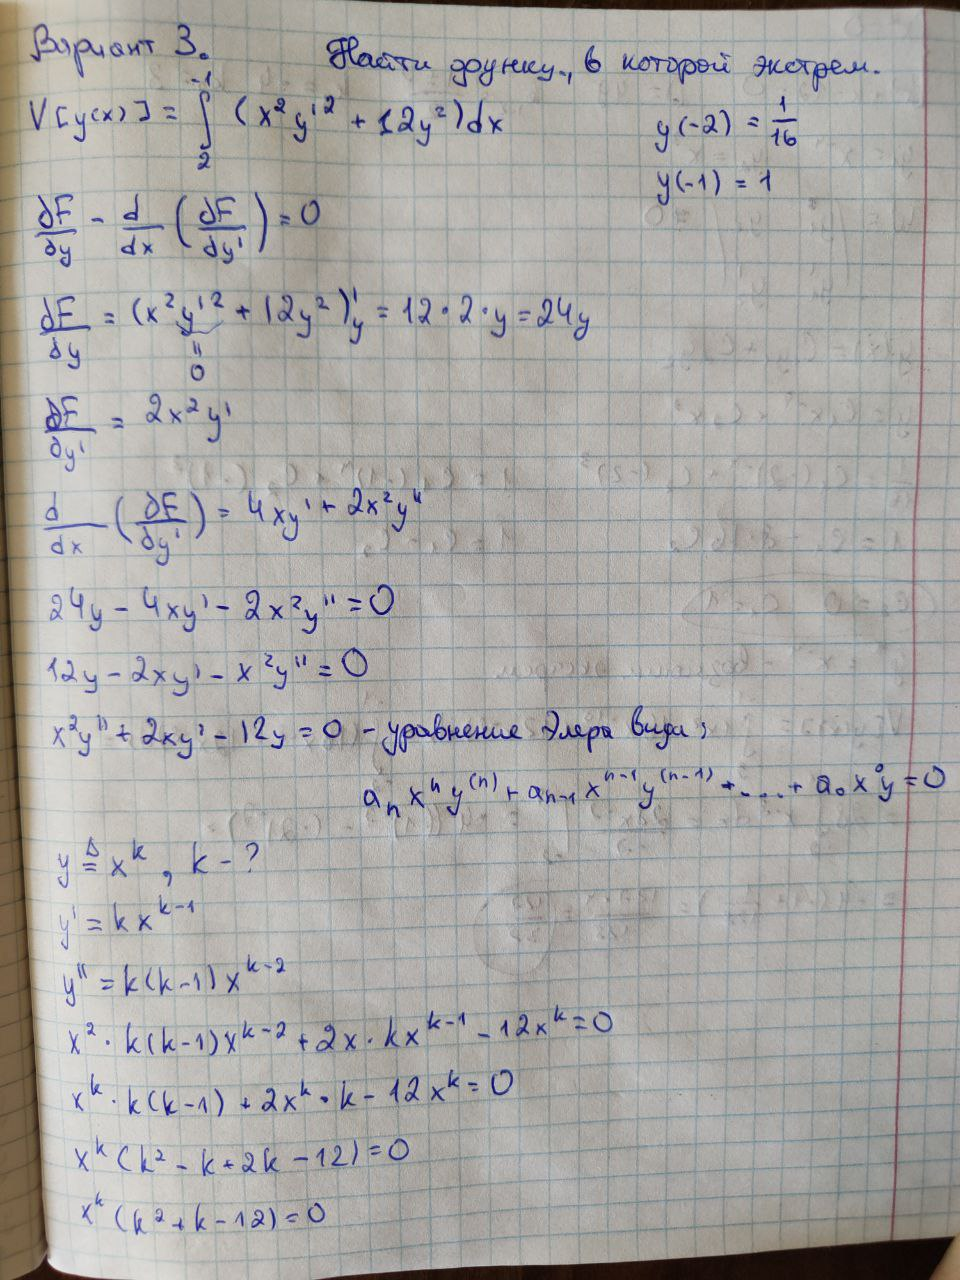 Вариант 3. Найти функц., в которой экстрем.
V[y(x)] = ∫₂⁻¹ (x² y'² + 12y²)dx
y(-2) = 1/16
y(-1) = 1
∂F/∂y - d/dx (∂F/∂y') = 0
∂F/∂y = (x² y'² + 12y²)'y = 12·2·y = 24y
"
0
∂F/∂y' = 2x² y'
d/dx (∂F/∂y') = 4xy' + 2x²y''
24y - 4xy' - 2x²y'' = 0
12y - 2xy' - x²y'' = 0
x²y'' + 2xy' - 12y = 0 - уравнение Элера вида;
aₙ xⁿ y⁽ⁿ⁾ + aₙ₋₁ xⁿ⁻¹ y⁽ⁿ⁻¹⁾ + .... + a₀ x⁰ y = 0
y ≜ xᵏ, k - ?
y' = k xᵏ⁻¹
y'' = k(k-1) xᵏ⁻²
x² · k(k-1)xᵏ⁻² + 2x · kxᵏ⁻¹ - 12xᵏ = 0
xᵏ · k(k-1) + 2xᵏ · k - 12xᵏ = 0
xᵏ (k² - k + 2k - 12) = 0
xᵏ (k² + k - 12) = 0